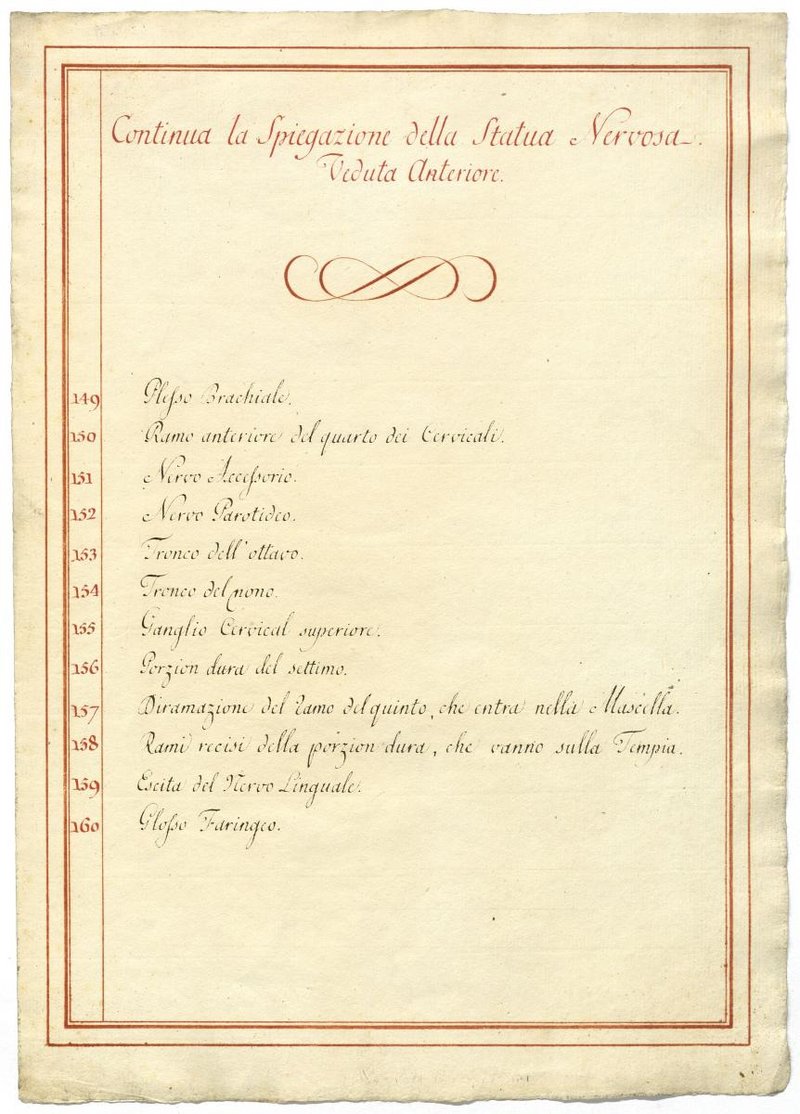 Continua la Spiegazione della Statua Nervosa.
Veduta Anteriore.
149 Plesso Brachiale.
150 Ramo anteriore del quarto dei Cervicali.
151 Nervo Accessorio.
152 Nervo Parotideo.
153 Tronco dell'ottavo.
154 Tronco del nono.
155 Ganglio Cervical superiore.
156 Porzion dura del settimo.
157 Diramazione del ramo del quinto, che entra nella Mascella.
158 Rami recisi della porzion dura, che vanno sulla Tempia.
159 Escita del Nervo Linguale.
160 Glosso Faringeo.